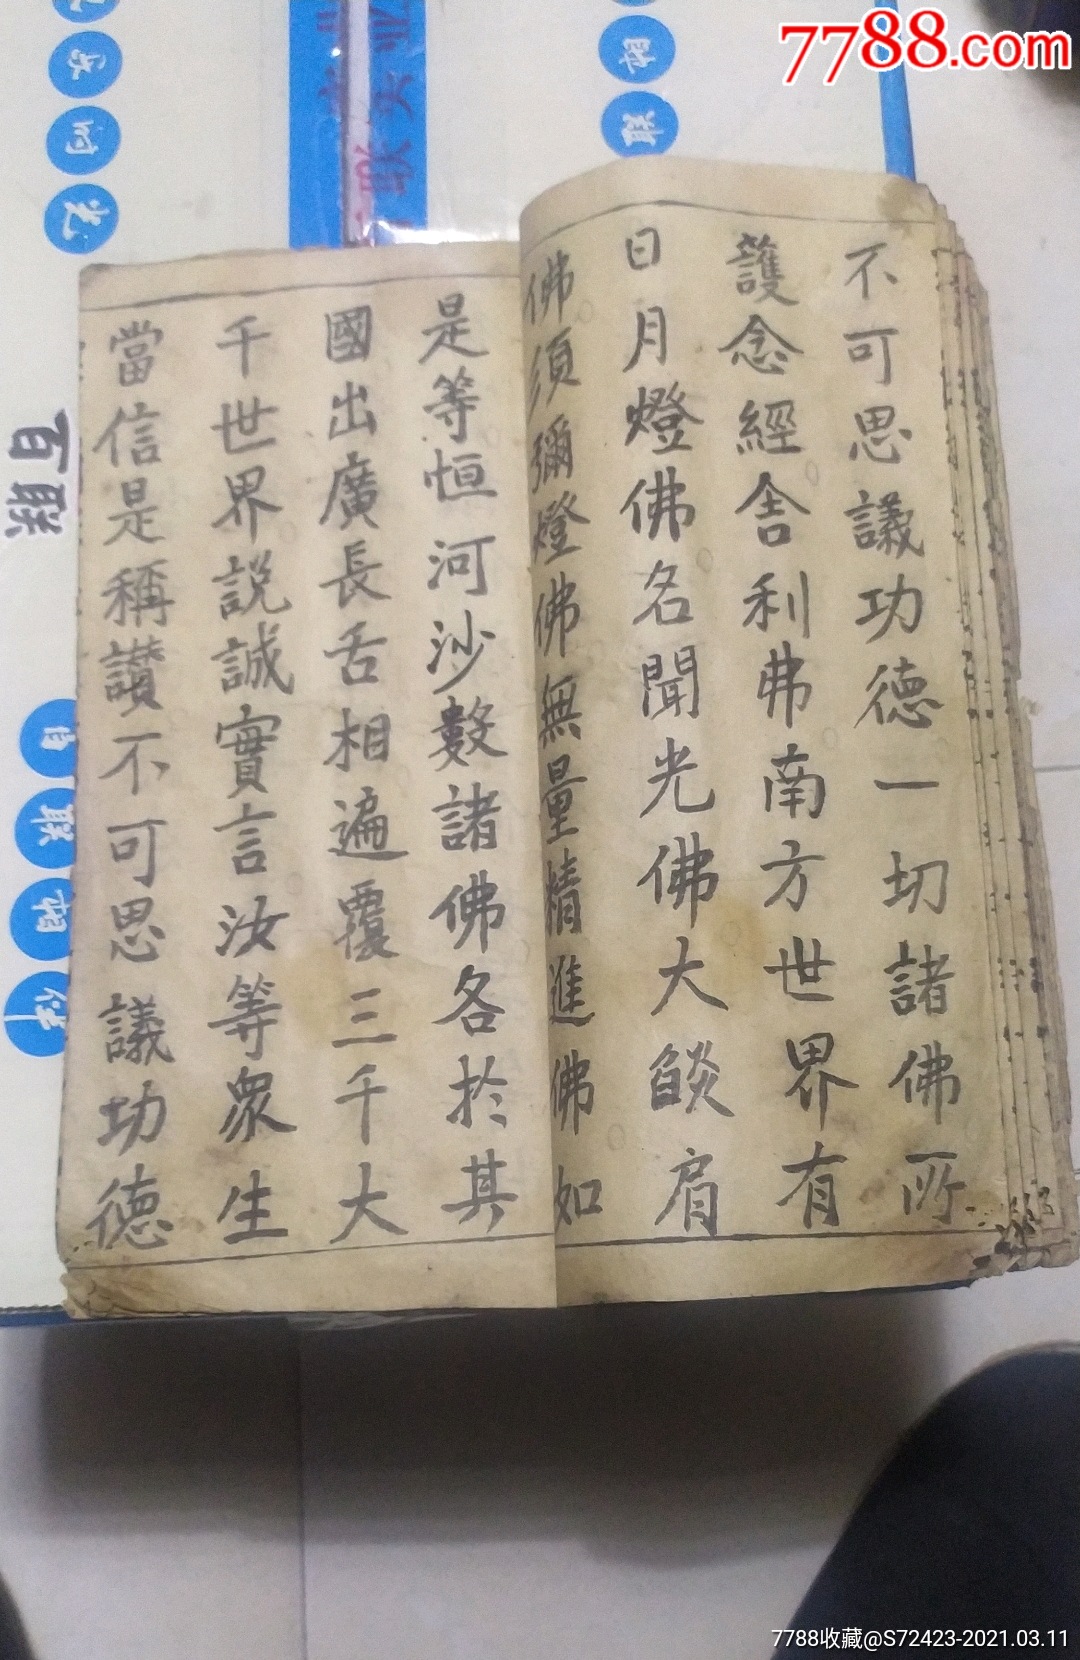 7788.com
不可思議功德一切諸佛所
護念經舍利弗南方世界有
日月燈佛名聞光佛大燄肩
佛須彌燈佛無量精進佛如
是等恒河沙數諸佛各於其
國出廣長舌相遍覆三千大
千世界説誠實言汝等衆生
當信是稱讃不可思議功德
百联
7788收藏@S72423-2021.03.11